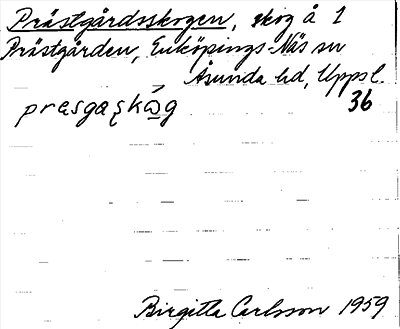 Prästgårdsskogen, skog å 1
Prästgården, Enköpings-Näs sn
Åsunda hd, Uppsl.
36
prɛsgaʂkɷ̀g
Birgitta Carlsson 1959